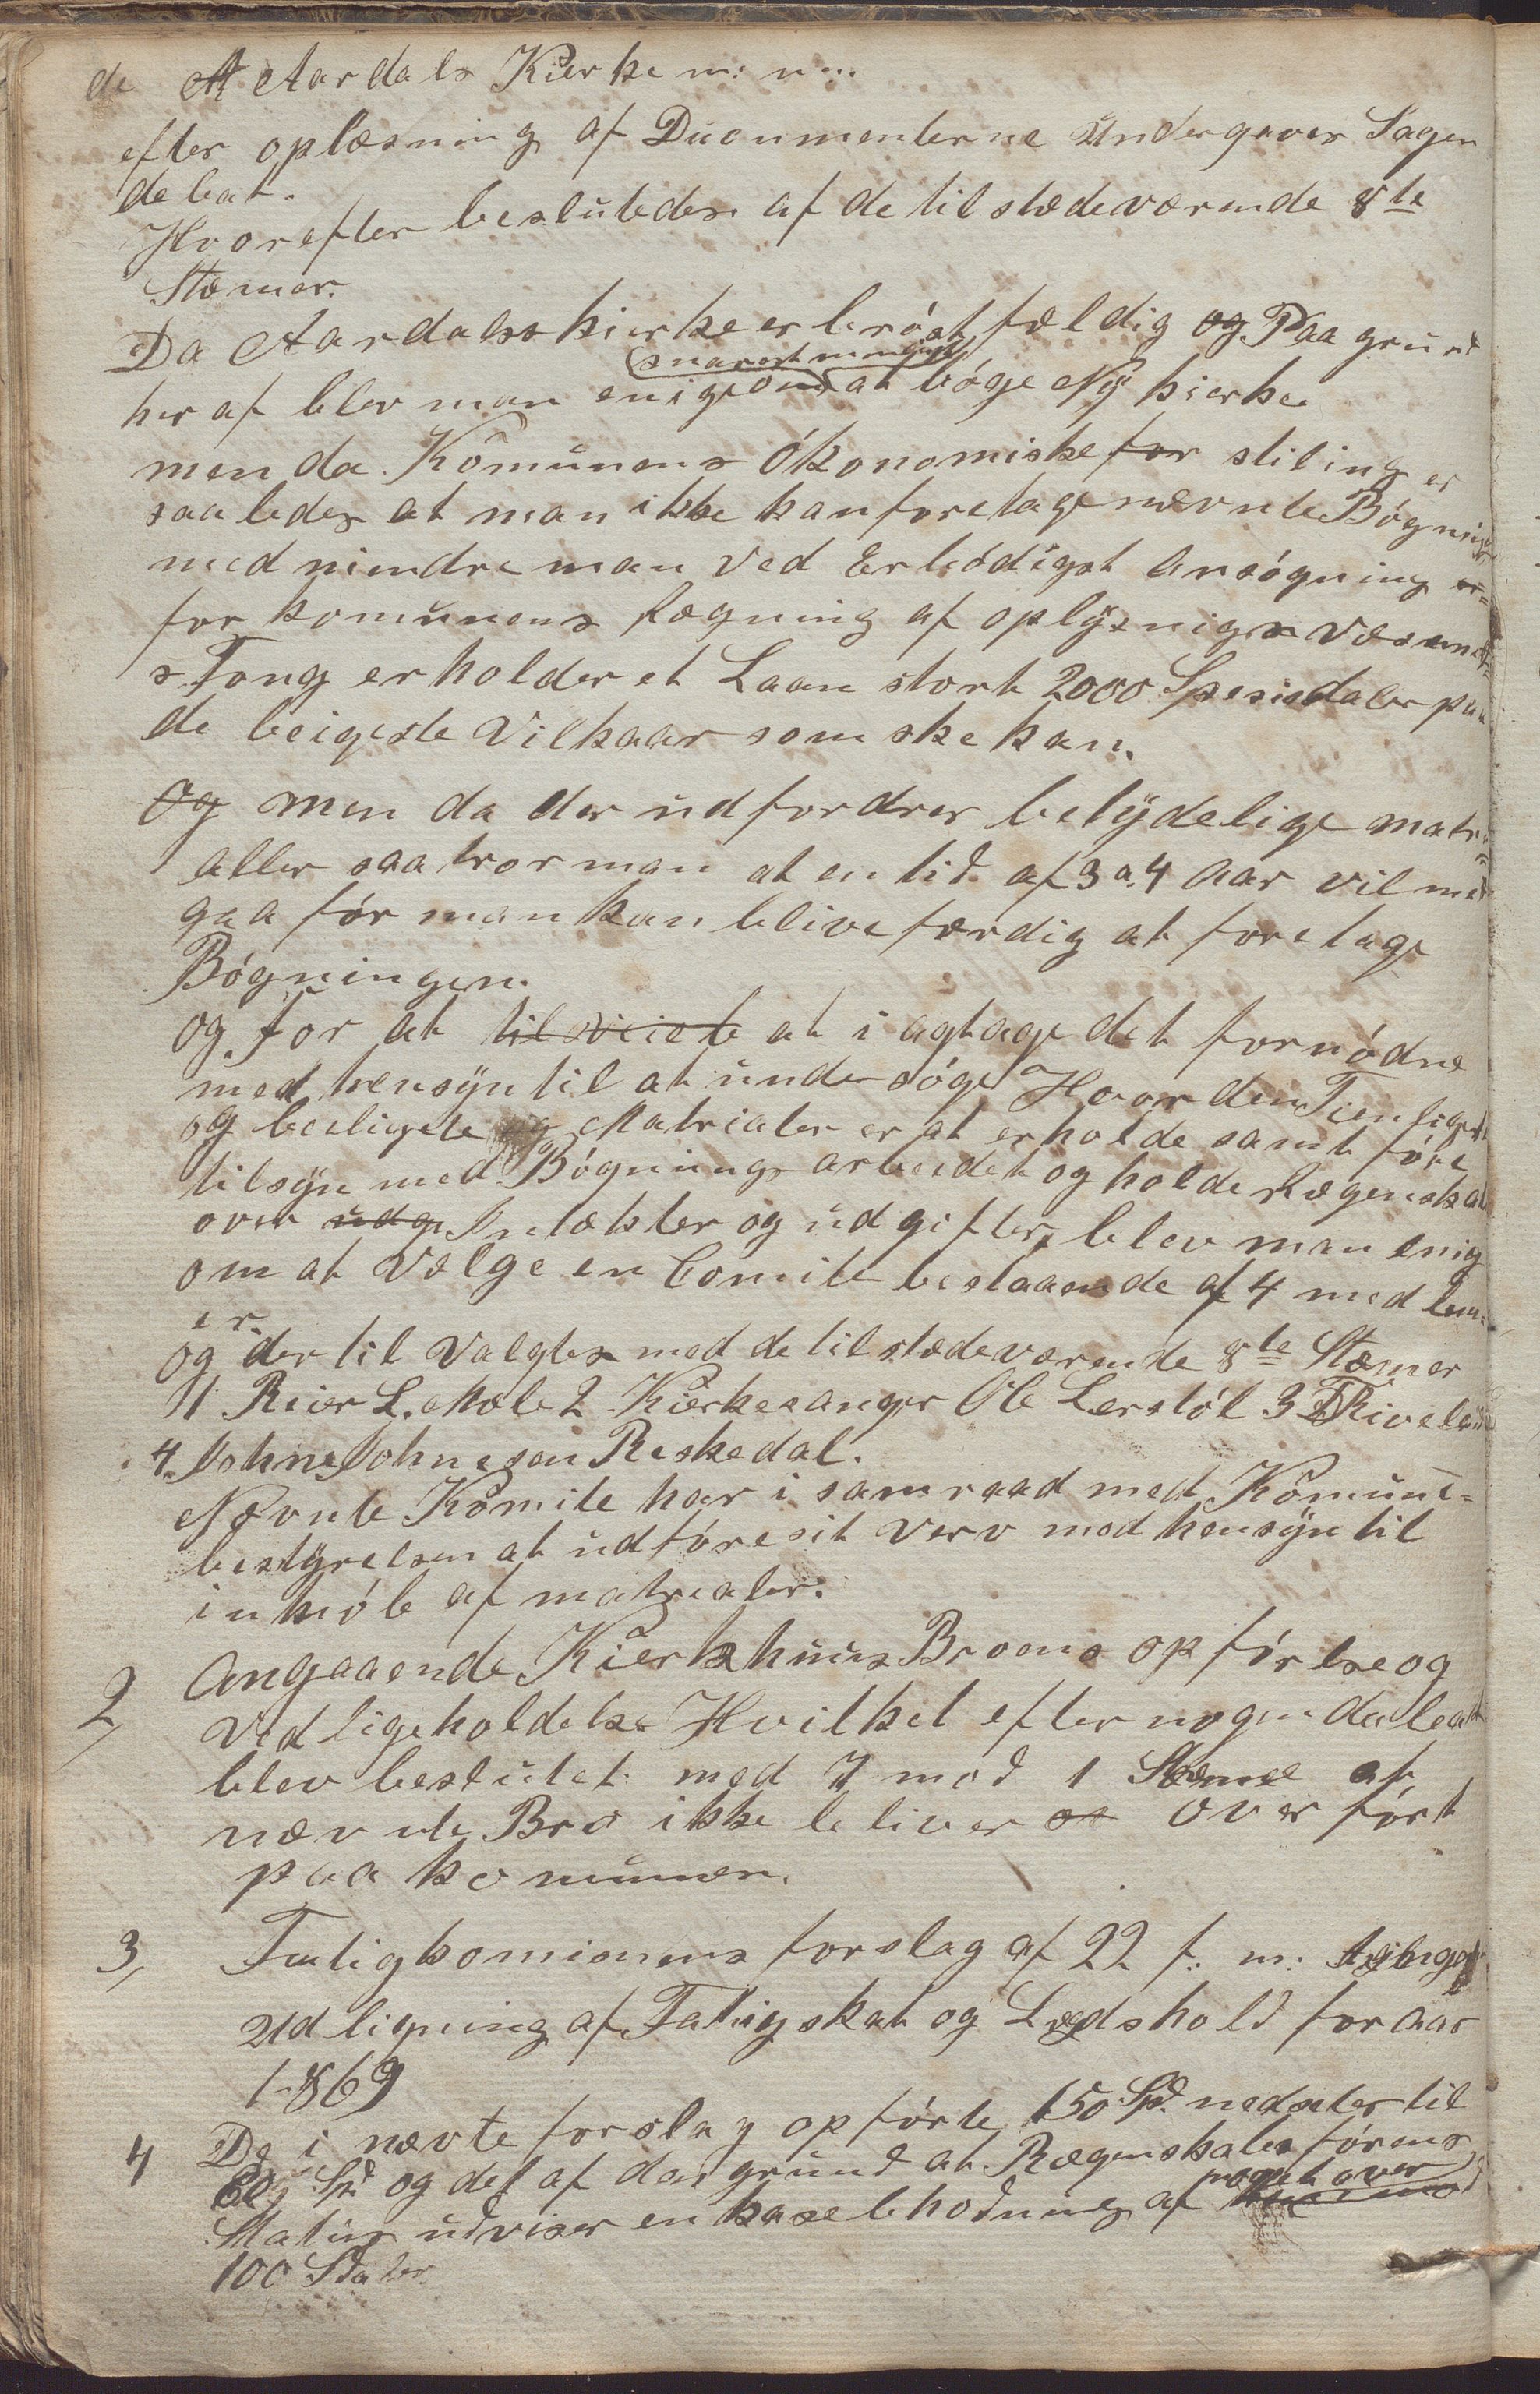 de Aardals Kierke m: m...
efter oplæsning af Ducumenterne Undergaves Sagen
debat.
Hvorefter besluttedes af de tilstædeværende 8te
Stæmer.
Da Aardalss kierke er bróstfældig og Paa grund
(snarest muligst)
her af blev man enige om at bóge Ny kierke
men da Komunens ókonomiske for stiling er
saaledes at man ikke kan foretage nævnte Bógning
med mindre man ved Erbódigst Ansógning
for komunens Rægning af oplysnigs væsenet
s Fong erholder et Laan stort 2000 Spesiedaler paa
de beigeste Vilkaar som ske kan.
Og men da der udfordrer betydelige matri
aller saa tror man at en tid af 3 a 4 Aar vil med
gaa fór man kan blive færdig at foretage
Bógningen.
og for at at iagtage det fornódne
med hensyn til at undersóge Hvor den Tienligste
og beeligste Matrialer er at erholde samt fóre
tilsyn med Bógnings arbeidet og holde Rægenskab
over udg Intækter og udgifter, blev man enig
om at Vælge en Comite bestaaende af 4 med lem-
er.
og der til Valgtes med de tilstædeværende 8te Stæmer
1 Reier L. Mæle 2 Kierkesanger Ole Lerstól 3 T Riveland
4. Johne Johnesen Reskedal.
Nævnte Komite har i samraad med Komune-
bestyrelsen at udfóre sit Verv med hensyn til
inkiób af matrialer.
2, Angaaende Kierkhuus Broens opfórlse og
Vedligeholdelse Hvilket efter nogen debat
blev beslutet med 7 mod 1 Stæmme at
nævnte Bro ikke bliver over fórt
paa komunen.
3, Fatigkomisionens forslag af 22 f: m:
Udligning af Fatigskat og Lægdshold for Aar
1869
4 De i nævte forslag opfórte 150 Spd. nedsætes til
Spd og det af den grund at Rægenskabsfórens
noget over
Status udviser en kasebeholdning af
100 Sdaler